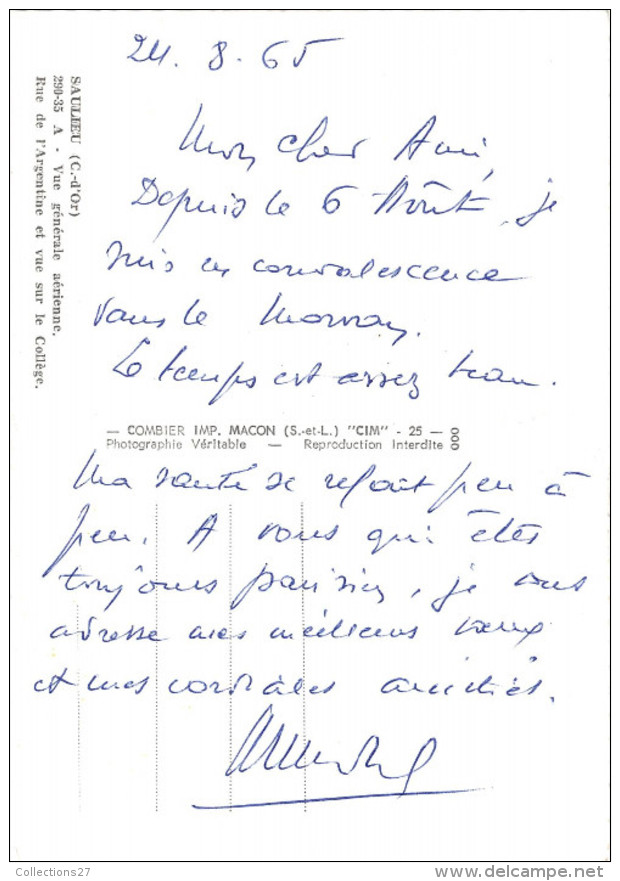 24. 8. 65
SAULIEU (C.-d'Or)
290-35 A - Vue générale aérienne.
Rue de l'Argentine et vue sur le Collège.
Mon cher Ami,
Depuis le 6 Août, je
suis en convalescence
dans le Morvan.
Le temps est assez beau.
— COMBIER IMP. MACON (S.-et-L.) "CIM" - 25 —
Photographie Véritable — Reproduction Interdite
000
Ma santé se refait peu à
peu. A vous qui êtes
toujours parisien, je vous
adresse mes meilleurs vœux
et mes cordiales amitiés.
Collections27
www.delcampe.net